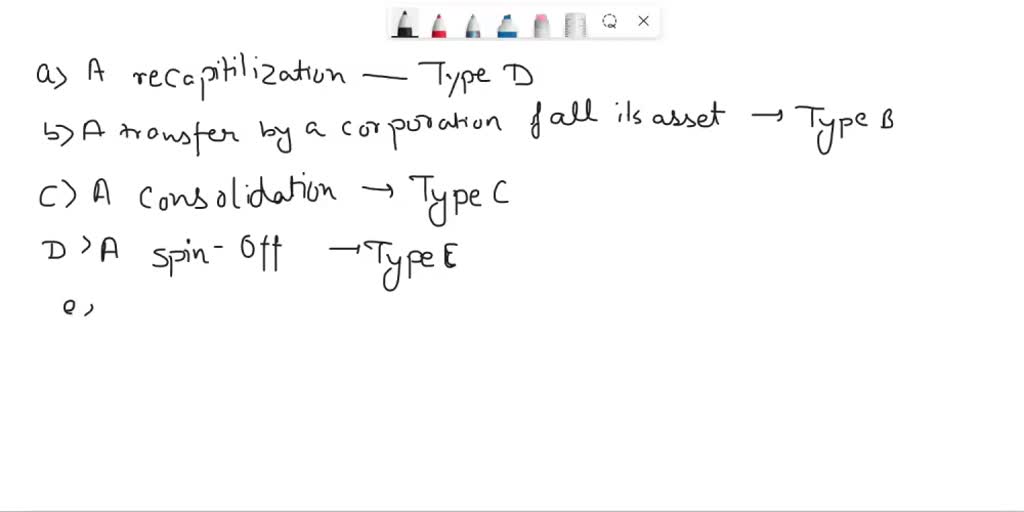 a) A recapitilization — Type D
b) A transfer by a corporation f all its asset → Type B
C) A Consolidation → Type C
D) A Spin-Off → Type E
e,